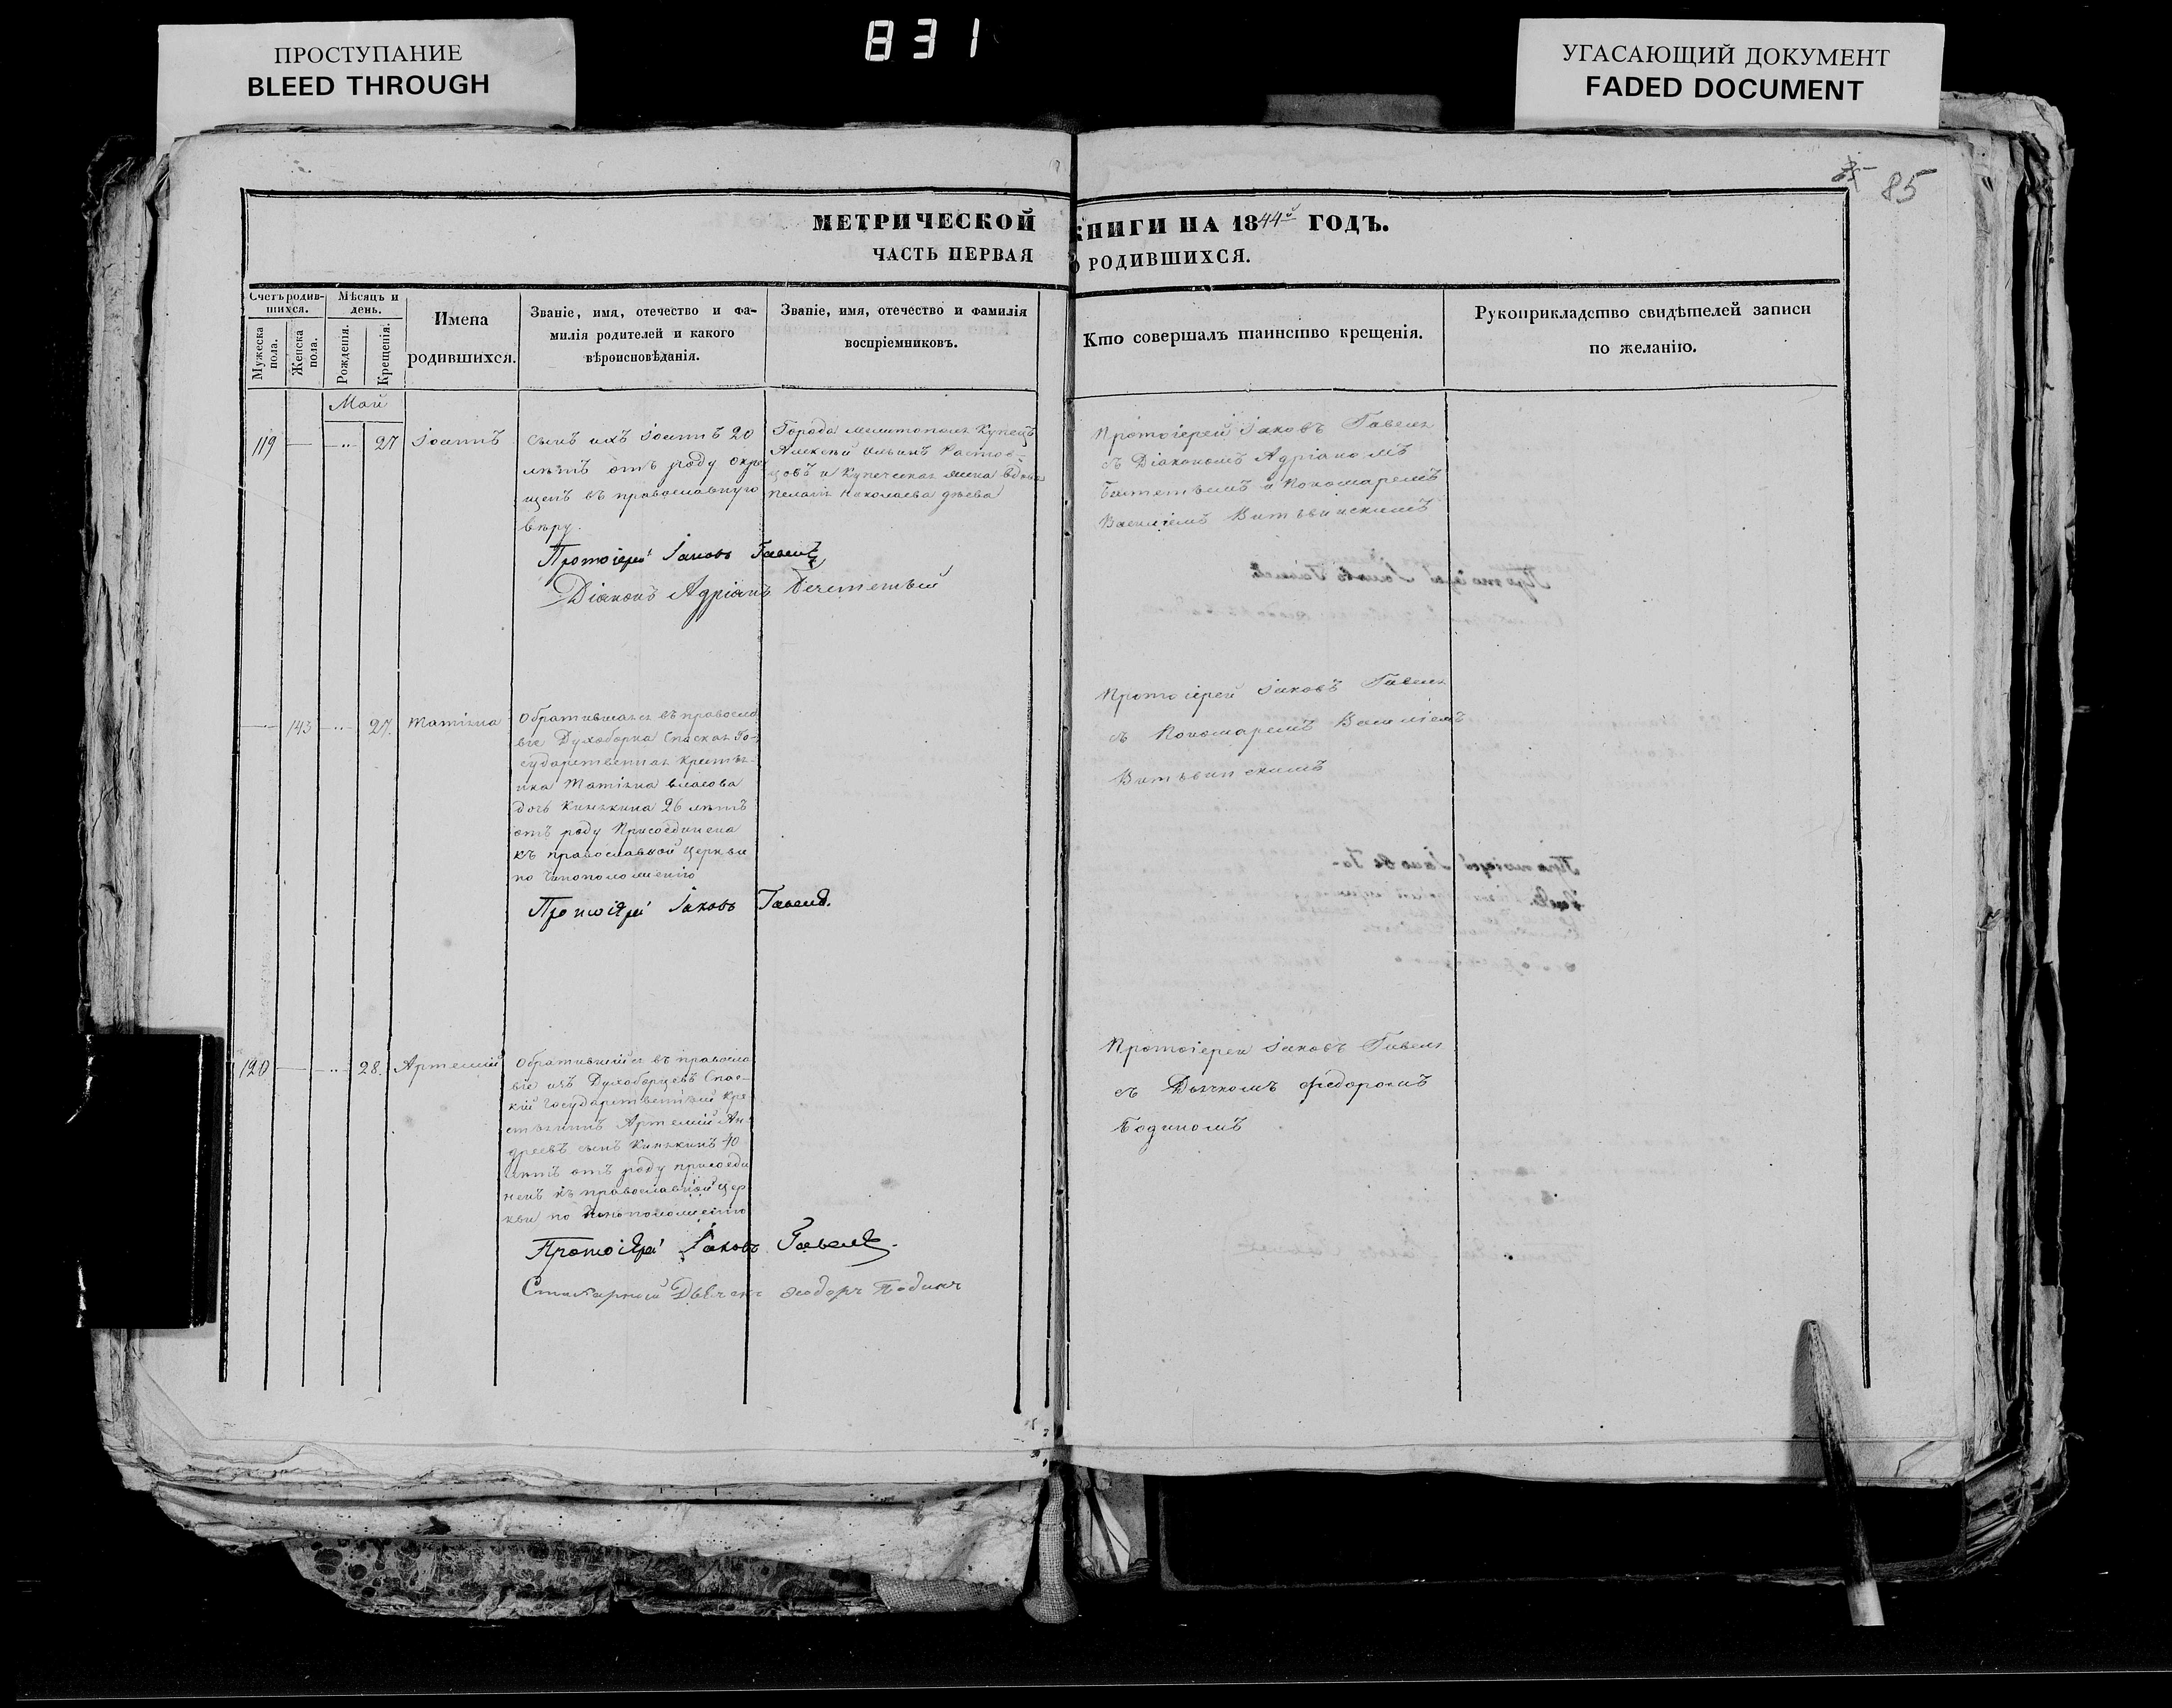 ПРОСТУПАНИЕ
BLEED THROUGH
831
УГАСАЮЩИЙ ДОКУМЕНТ
FADED DOCUMENT
85
МЕТРИЧЕСКОЙ КНИГИ НА 1844й ГОДЪ.
ЧАСТЬ ПЕРВАЯ О РОДИВШИХСЯ.
Счетъ родившихся.
Мужеска пола.
Женска пола.
Мѣсяцъ и день.
Рожденія.
Крещенія.
Имена родившихся.
Званіе, имя, отечество и фа-
милія родителей и какого
вѣроисповѣданія.
Званіе, имя, отечество и фамилія
воспріемниковъ.
Кто совершалъ таинство крещенія.
Рукоприкладство свидѣтелей записи
по желанію.
Май
119
27
Іоаннъ
сынъ ихъ Іоаннъ 20
лѣтъ отъ роду окре
щенъ въ православную
вѣру.
Города Мелитополя Купецъ
Алексѣй Ильинъ
и Купеческая жена
Пелагія Николаева
Протоіерей Іаковъ Гавель
съ Діакономъ Адріаномъ
и Пономаремъ
Василіемъ
Протоіерей Іаковъ Гавель
Діаконъ Адріанъ
143
27.
Матіяна
Обратившаяся въ правосла
віе Духоборка Спаская Го-
сударственная Крестья-
нка Матіяна Власова
дочь Кинякина 26 лѣтъ
отъ роду Присоединена
къ православной Церкви
по Чиноположенію
Протоіерей Іаковъ Гавель
съ Пономаремъ Василіемъ
Протоіерей Іаковъ Гавель.
120
28.
Артемій
Обратившійся въ правосла
віе изъ Духоборцевъ Спас-
кій Государственный Кре
стьянинъ Артемій Ан-
дреевъ сынъ Кинякинъ 40
лѣтъ отъ роду присоеди
ненъ къ православной Цер
кви по Чиноположенію
Протоіерей Іаковъ Гавель
съ Дьячкомъ Федоромъ
Бодиномъ
Протоіерей Іаковъ Гавель.
Дьячекъ Феодоръ Бодинъ